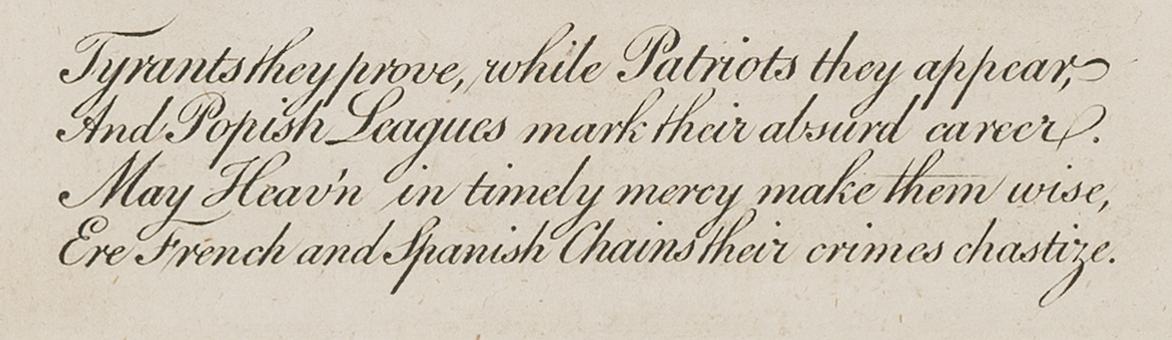 Tyrants they prove, while Patriots they appear,
And Popish Leagues mark their absurd career.
May Heav'n in timely mercy make them wise,
Ere French and Spanish Chains their crimes chastize.